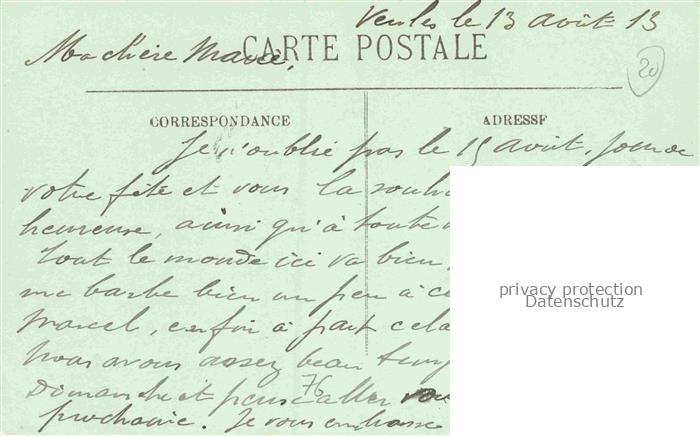 Veules le 13 août 13
Ma chère Marie,
CARTE POSTALE
20
CORRESPONDANCE
ADRESSE
Je n'oublie pas le 15 août, jour de
votre fête et vous la souh
heureuse, ainsi qu'à toute
Tout le monde ici va bien,
me barbe bien un peu à c
Marcel, enfin à part cela
nous avons assez beau temp
Dimanche et pense aller vou
76
prochaine. Je vous embrasse
privacy protection
Datenschutz